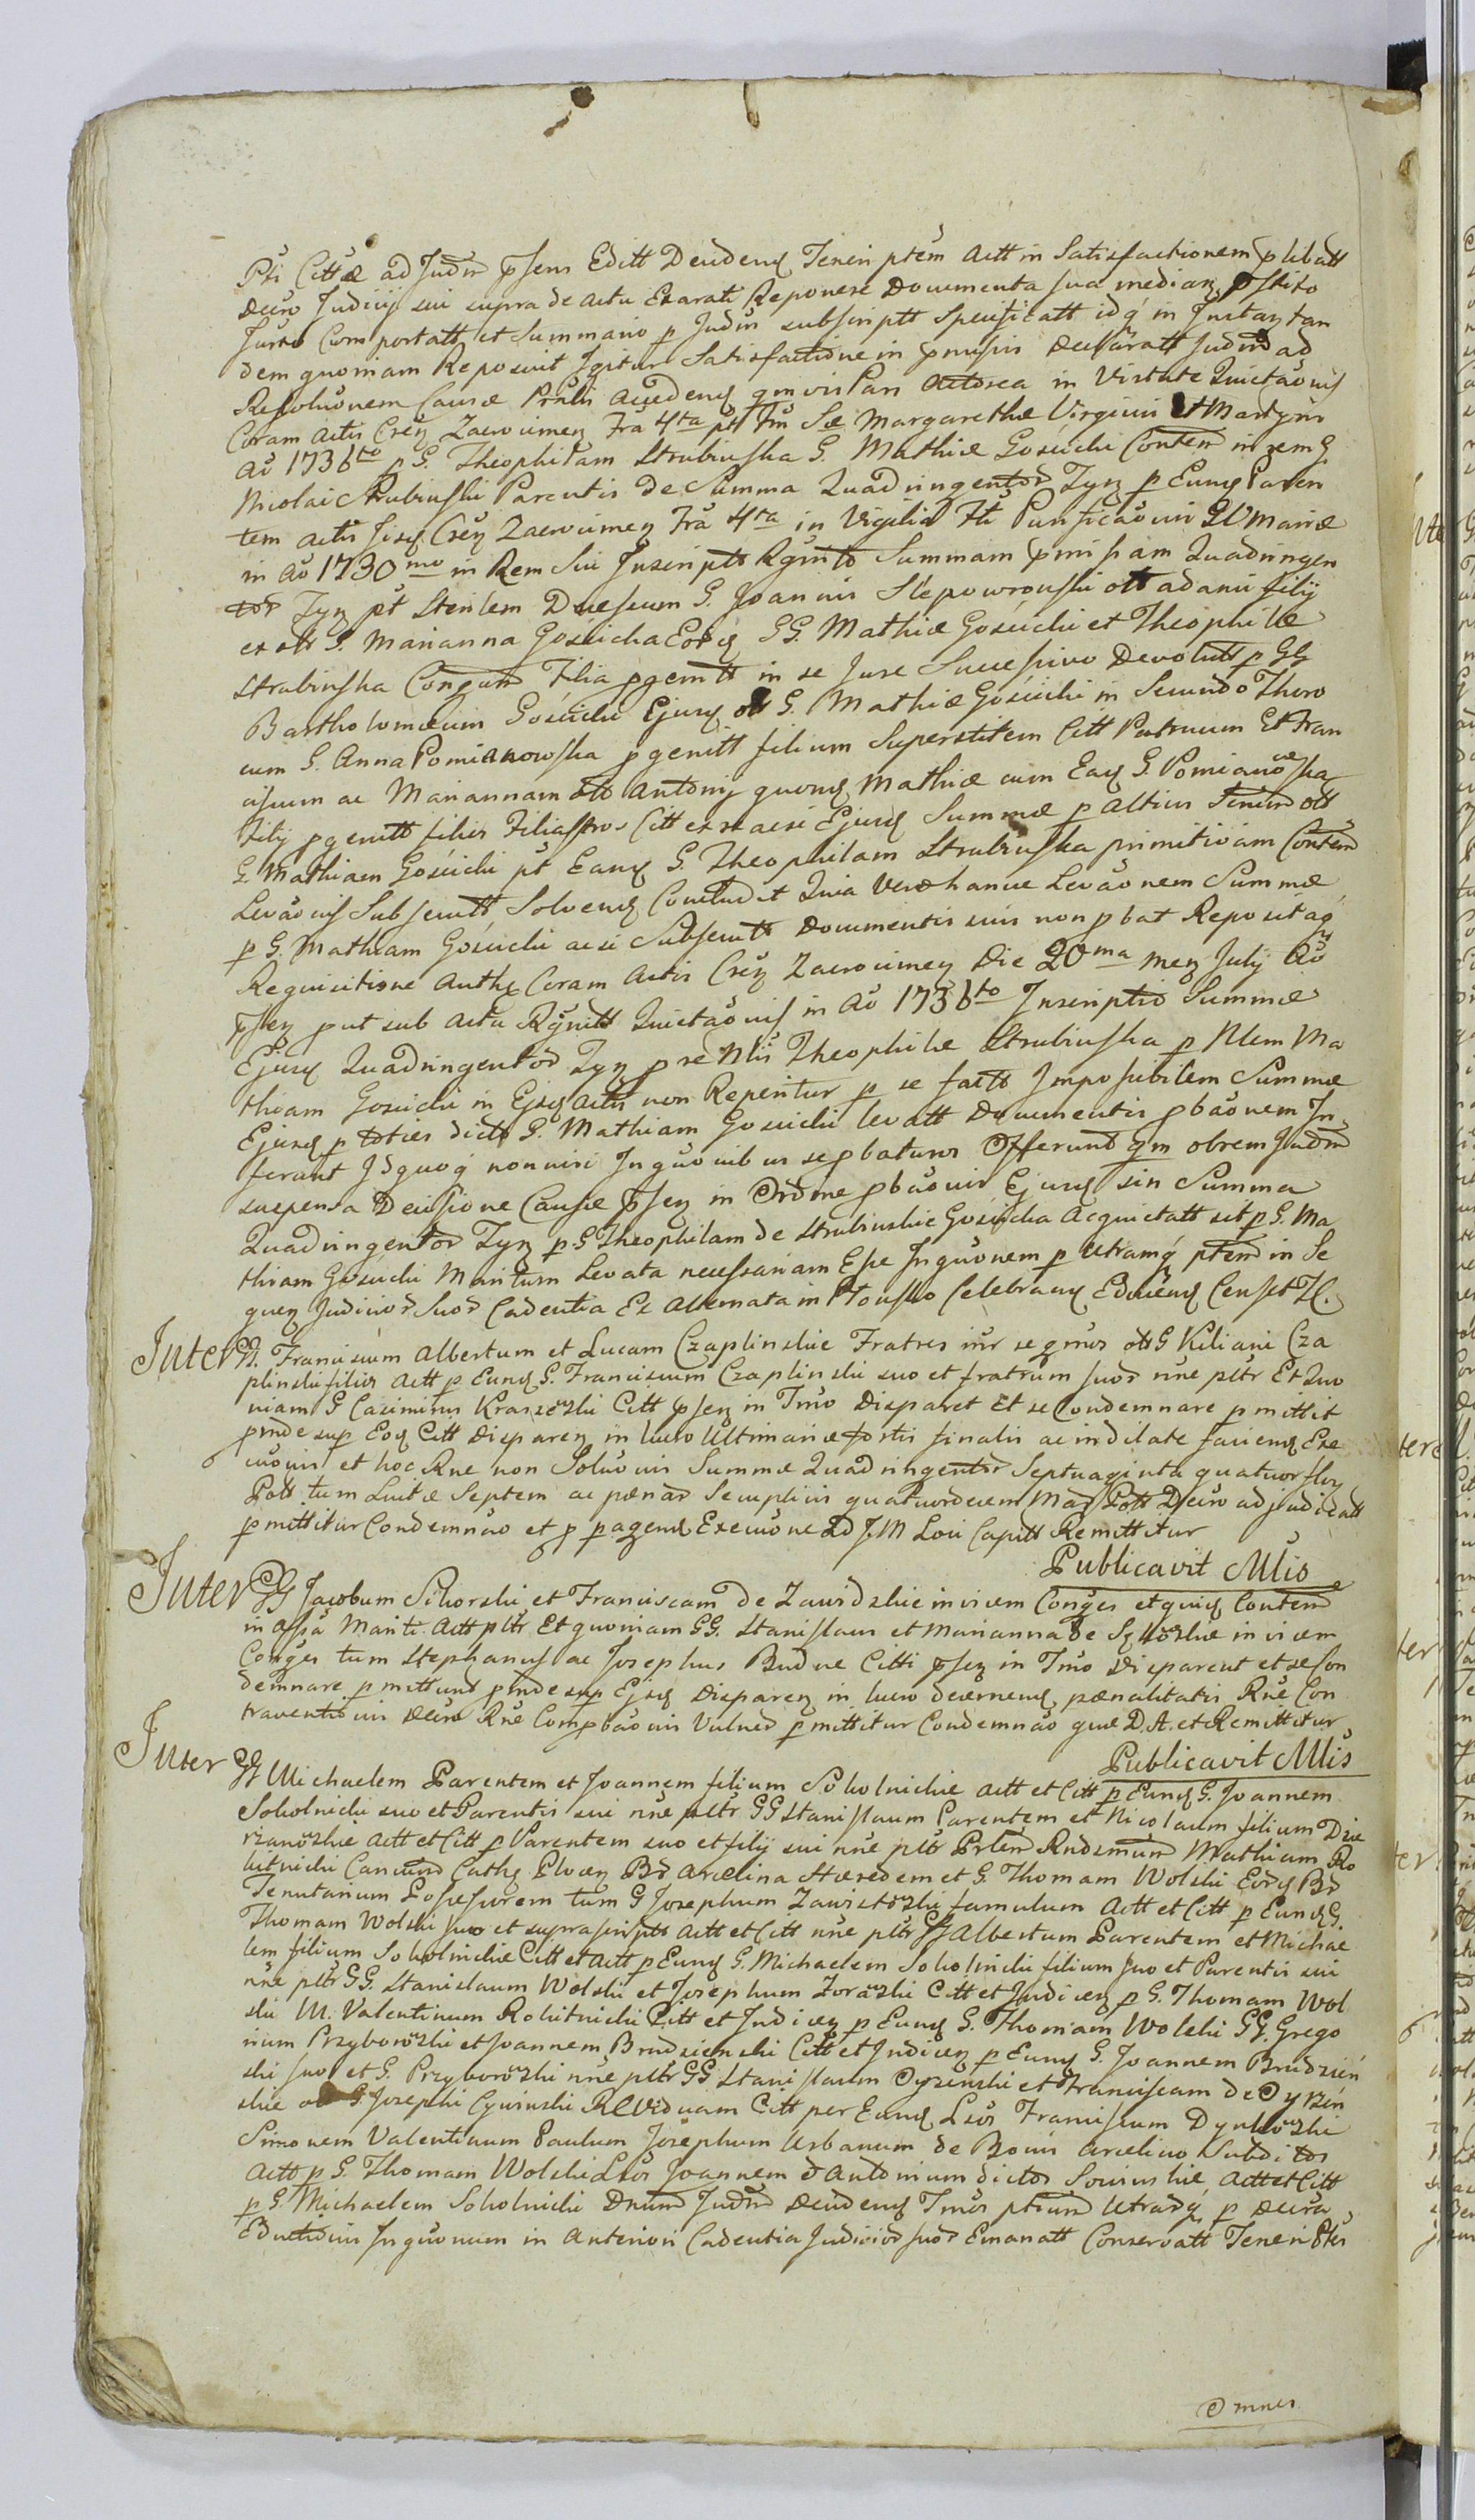 Pti Cittæ ad Judm pnsens Editt Decidens Teneri ptem Actt in Satisfactionem plibatt
Decro Judicij sui supra de actu Exarati Reponere Documenta sua median pstito
Jurto Comportatt et Summario p Judm subscriptt Specificatt idq in Justan tan
dem quoniam Reposuit Igitur Satisfactione in pmissis Declaratt Judm ad
Resoluonem Causæ Pntis accedens qmvis Pars Actorea in Virtute Quictaõnis
Coram Actis Cren Zacrocimen Fra 4ta pt Ftu Sæ Margarethæ Virginis Et Martyris
Aõ 1736to p G. Theophilam Strubinska G. Mathiæ Gosciicki Contem in rem G
Nicolai Strubinski Parentis de Summa Quadringentor Fyn p Eunq Paren
tem actis Jisq Cren Zacrocimen Fra 4ta in Vigilia Fti Purificaõnis BV Mariæ
in Aõ 1730mo in Rem Sui Inscriptt Rgnito Summam pmissam Quadringen
tor Fyn pt Sterilem Decessum G. Joannis Slepowronski ott adami filij
ex ott G. Marianna Gosciicka Eorq GG. Mathiæ Gosciicki et Theophilæ
Strubinska Conjum Filia pgenitt in se Jure Successivo Devolutt p GG
Bartholomæum Gosciicki Ejusq ott G. Mathiæ Gosciicki in Secundo Thoro
cum G. Anna Pomianowska pgenitt filium Superstitem Citt Patruum Et Fran
ciscum ac Mariannam ott Antonij quonq Mathiæ cum Eaq G. Pomianowska
filij pgenitt filios Filiastros Citt ex re acsi Ejusq Summæ p Altius Tenem ott
G. Mathiam Gosciicki pt Eanq G. Theophilam Strubinska primitivam Contem
Levaõnis Subsecutt Solvens Concludit Quia Vero hance Levaõnem Summæ
p G. Mathiam Gosciicki acsi Subsecutt Documentis suis non pbat Repositaq
Requisitione Anthe Coram Actis Cren Zacrocimen Die 20ma Men Julij Aõ
psen put sub actu Rgnitt Quictaõnis in Aõ 1736to Inscriptio Summæ
Ejusq Quadringentor Fyn p re Nlis Theophilæ Strubinska p Nlem Ma
thiam Gosciicki in Ejsq Actis non Reperitur p se facto Impossibilem Summæ
Ejusq p toties dicto G. Mathiam Gosciicki levatt Documentis pbaõnem In
ferant Idquoq non nisi Inquõnibus se pbaturos Offerunt qm ob rem Judm
suspensa Decisione Causæ psen in Ordine pbaõnis Ejusq sin Summa
Quadringentor Fyn p G Theophilam de Strubinskie Gosciicka Acquictatt sit p G. Ma
thiam Gosciicki Maritum Levata necessariam Esse Inquõnem p Utramq ptem in Se
quen Judicior Suor Cadentia Ex Alternata in Plonsko Celebranq Educens Censet H.
Inter GG. Franciscum Albertum et Lucam Czaplinskie Fratres inr se gmos ott G Kiliani Cza
plinski filios Actt p Eunq G. Franciscum Czaplinski suo et fratrum suor nne pltr Et Quo
niam G Casimirus Kraszewski Citt psen in Tmo Disparet Et se Condemnare pmittit
pinde sup Eoq Citt Disparen in lucro Ultimariæ fortis finalis ac indilate faciens Exe
cuõnis et hoc Rne non Soluõnis Summæ Quadringentor Septuaginta quatuor flor
Poll tum Luitæ Septem ac pœnar Semplivis quatuordecem Mar Poll Decro adjudicatt
pmittitur Condemnaõ et p pagend Execuõne Ad J. M Loci Capitt Remittitur
Publicavit Mlis
Inter GG Jacobum Sikorski et Franciscam de Zawidzkie invicem Conges et quiq Contem
in assa Mariti Actt pltr Et quoniam GG. Stanislaus et Marianna de Szkorskie invicem
Conges tum Stephanus ac Josephus Budne Citti psen in Tmo Disparent et se Con
demnare pmittunt pinde sup Ejsq Disparen in lucro decernens pænalitatis Rne Con
traventionis Decro Rne Compbaõnis Vulner pmittitur Condemnaõ quæ D. A. et Remittitur
Publicavit Mlis
Inter GG Michaelem Parentem et Joannem filium Sokolnickie Actt et Citt p Eunq G. Joannem
Sokolnicki suo et Parentis sui nne pltr GG Stanislaum Parentem et Nicolaum filium Dzie
rzanowskie Actt et Citt p Parentem suo et filij sui nne pltr Prlem Rndsmum Mathiam Ro
kitnicki Canicum Cathe Plocen Br Arcelina Hæredem et G. Thomam Wolski Eorq Br
Tenutarium Possessorem tum G Josephum Zawistowski famulum Actt et Citt p Eunq G.
Thomam Wolski suo et suprascriptt Actt et Citt nne pltr GG Albertum Parentem et Michae
lem filium Sokolnickie Citt et Actt p Eunq G. Michaelem Sokolnicki filium suo et Parentis sui
nne pltr GG. Stanislaum Wolski et Josephum Zorawski Citt et Judicen p G. Thomam Wol
ski M. Valentinum Rokitnicki Citt et Judicen p Eunq G. Thomam Wolski GG. Grego
rium Przyborowski et Joannem Brudzienski Citt et Judicen p Eunq G. Joannem Brudzien
ski suo et G. Przyborowski nne pltr GG Stanislaum Dyzenski et Franciscam de Dyrzen
skie ott G Josephi Cywinski R Viduam Citt per Eunq Lsos Franciscum Dynkowski
Simonem Valentinum Paulum Josephum Urbanum de Bonis Arcelino Subditos
Actt p G. Thomam Wolski Lsos Joannem et Antonium dictos Sowinskie Actt et Citt
p G. Michaelem Sokolnicki Dnum Judm Decidens Tmos ptium Utrarq p Decra
Eductionis Inquõnum in Anteriori Cadentia Judicior suor Emanatt Conservatt Teneri Ptes
Omnes